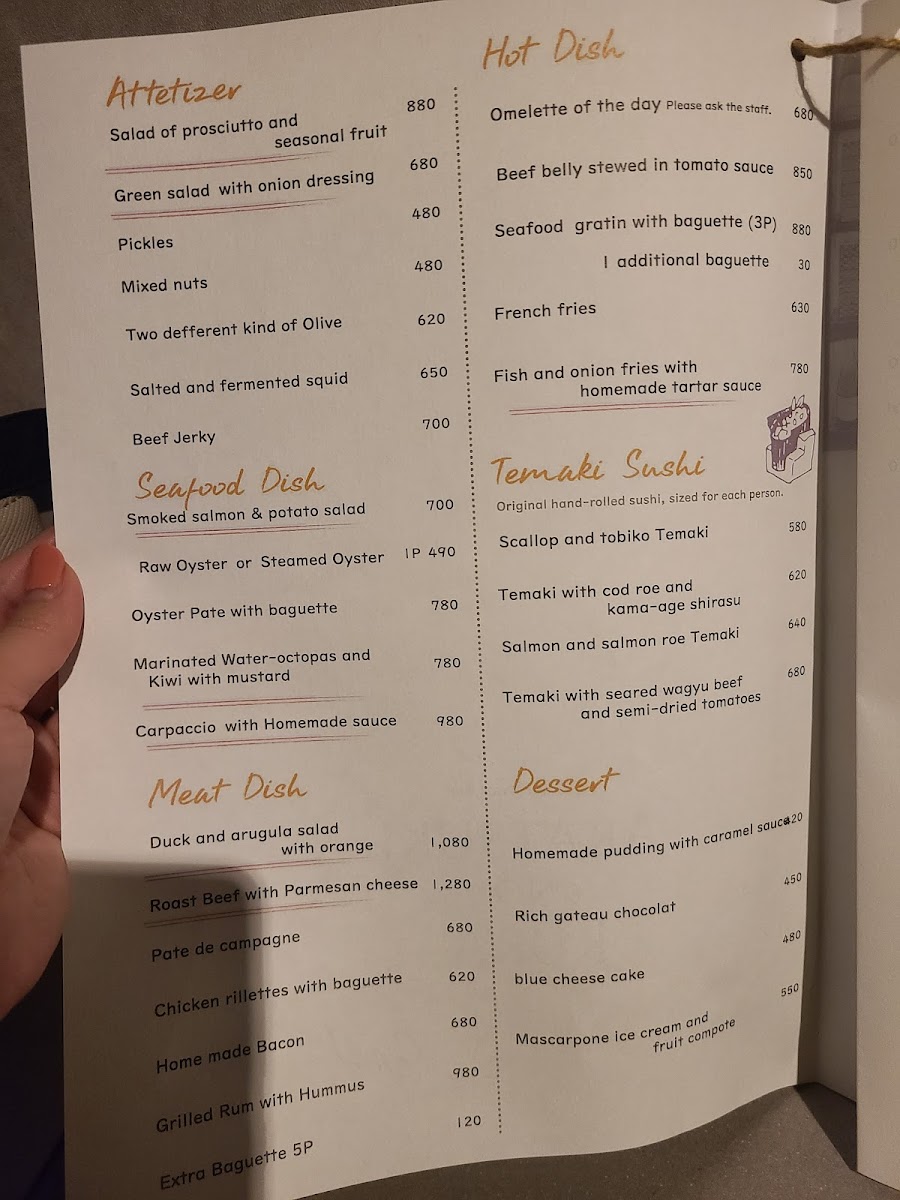 Attetizer
Salad of prosciutto and 880
seasonal fruit
Green salad with onion dressing 680
Pickles 480
Mixed nuts 480
Two defferent kind of Olive 620
Salted and fermented squid 650
Beef Jerky 700
Seafood Dish
Smoked salmon & potato salad 700
Raw Oyster or Steamed Oyster 1P 490
Oyster Pate with baguette 780
Marinated Water-octopas and
Kiwi with mustard 780
Carpaccio with Homemade sauce 980
Meat Dish
Duck and arugula salad
with orange 1,080
Roast Beef with Parmesan cheese 1,280
Pate de campagne 680
Chicken rillettes with baguette 620
Home made Bacon 680
Grilled Rum with Hummus 980
Extra Baguette 5P 120
Hot Dish
Omelette of the day Please ask the staff. 680
Beef belly stewed in tomato sauce 850
Seafood gratin with baguette (3P) 880
1 additional baguette 30
French fries 630
Fish and onion fries with 780
homemade tartar sauce
Temaki Sushi
Original hand-rolled sushi, sized for each person.
Scallop and tobiko Temaki 580
Temaki with cod roe and 620
kama-age shirasu
Salmon and salmon roe Temaki 640
Temaki with seared wagyu beef 680
and semi-dried tomatoes
Dessert
Homemade pudding with caramel sauce
Rich gateau chocolat 450
blue cheese cake 480
Mascarpone ice cream and 550
fruit compote